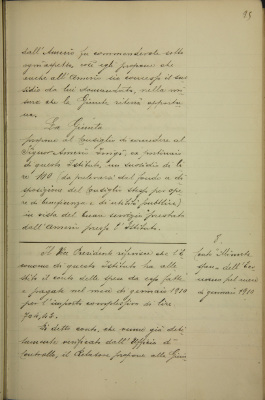 95
dall'Amerio fu commendevole sotto
ogni aspetto, così egli propone che
anche all'Amerio sia concesso il sus
sidio da lui domandato, nella mi
sura che la Giunta reterrà opportu
na.
La Giunta
propone al Consiglio di accordare al
Signor Amerio Luigi, ex
di questo Istituto, un sussidio di Li
re 100 (da prelevarsi dal fondo a di
sposizione del Consiglio stesso per ope
re di beneficenza e di utilità pubblica)
in vista del buon servizio prestato
dall'Amerio presso l'Istituto.
Il Vice Presidente riferisce che l'E
conomo di questo Istituto ha alle
stito il conto delle spese da esso fatte
e pagate nel mese di gennaio 1910
per l'importo complessivo di Lire
704,43.
Di detto conto, che venne già debi
tamente verificato dall'Ufficio di
Controllo, il Relatore propone alla Giun
8.
Conto Minute
spese dell'Eco
nomo pel mese
di gennaio 1910